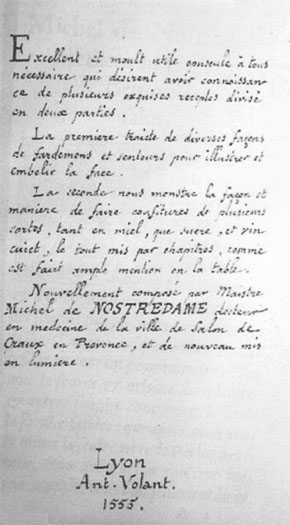 Excellent et moult utile opuscule à tous
nécessaire qui désirent avoir connoissan-
ce de plusieurs exquises receptes divisé
en deux parties.
La premiere traicte de diverses façons
de fardemens et senteurs pour illustrer et
embelir la face.
La seconde nous monstre la façon et
maniere de faire confitures de plusieurs
sortes, tant en miel, que sucre, et vin
cuict, le tout mis par chapitres, comme
est faict ample mention en la table.
Nouvellement composé par Maistre
Michel de NOSTREDAME docteur
en medecine de la ville de Salon de
Craux en Provence, et de nouveau mis
en lumiere.
Lyon
Ant. Volant.
1555.